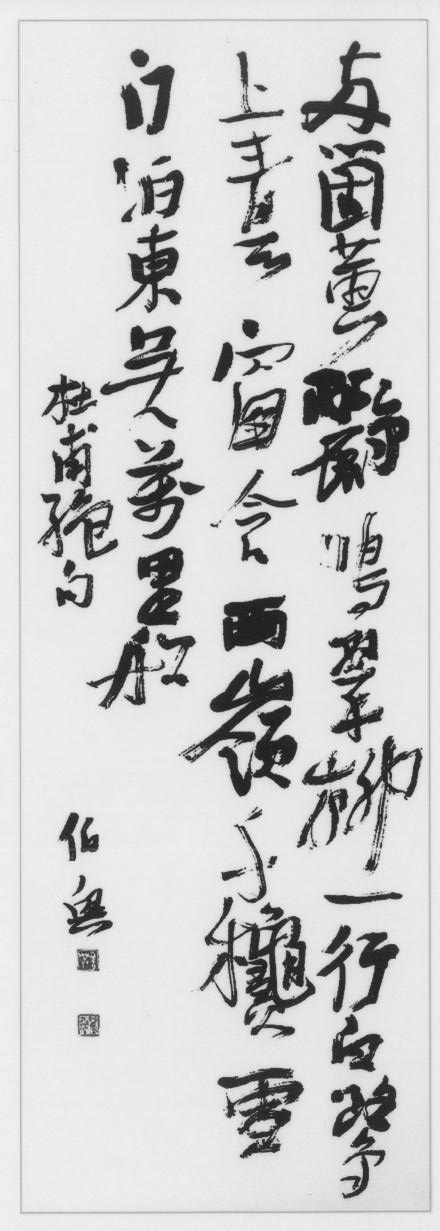 兩箇黃鸝鳴翠柳一行白鷺
上青天窗含西嶺千秋雪
門泊東吳萬里船
杜甫絕句
伯舆